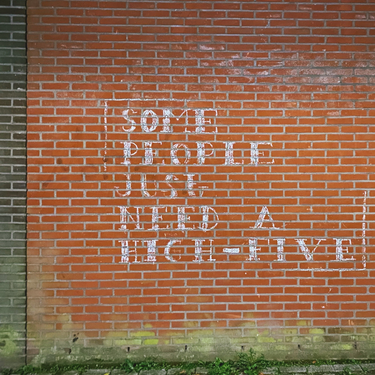 SOME
PEOPLE
JUST
NEED A
HIGH-FIVE